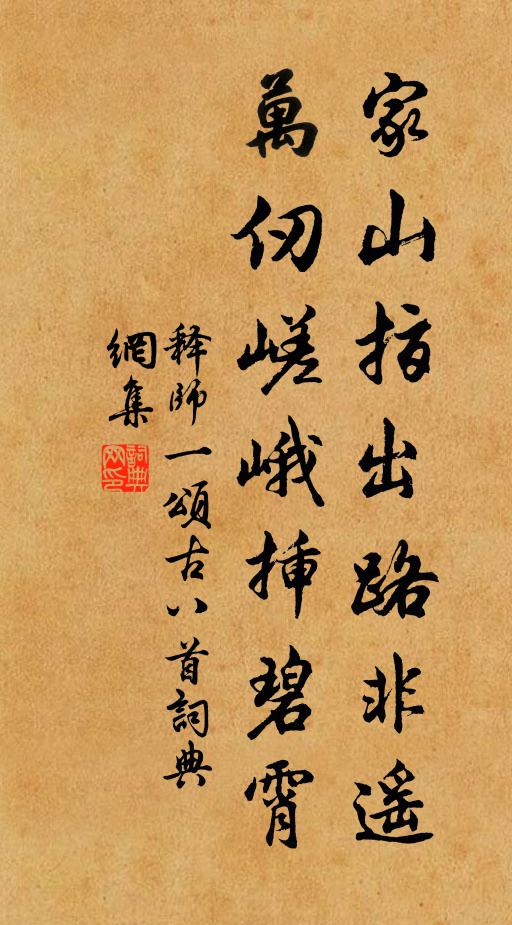 家山指出路非遥
萬仞嵯峨揷碧霄
释師一頌古八首詞典
網集
詞典
网印